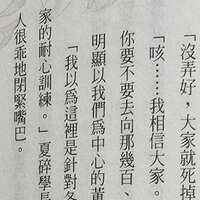 「沒弄好，大家就死掉
「咳……我相信大家。
你要不要去問那幾百、
明顯以我們為中心的黃
「我以為這裡是針對各
家的耐心訓練。」夏碎學長
人很乖地閉緊嘴巴。